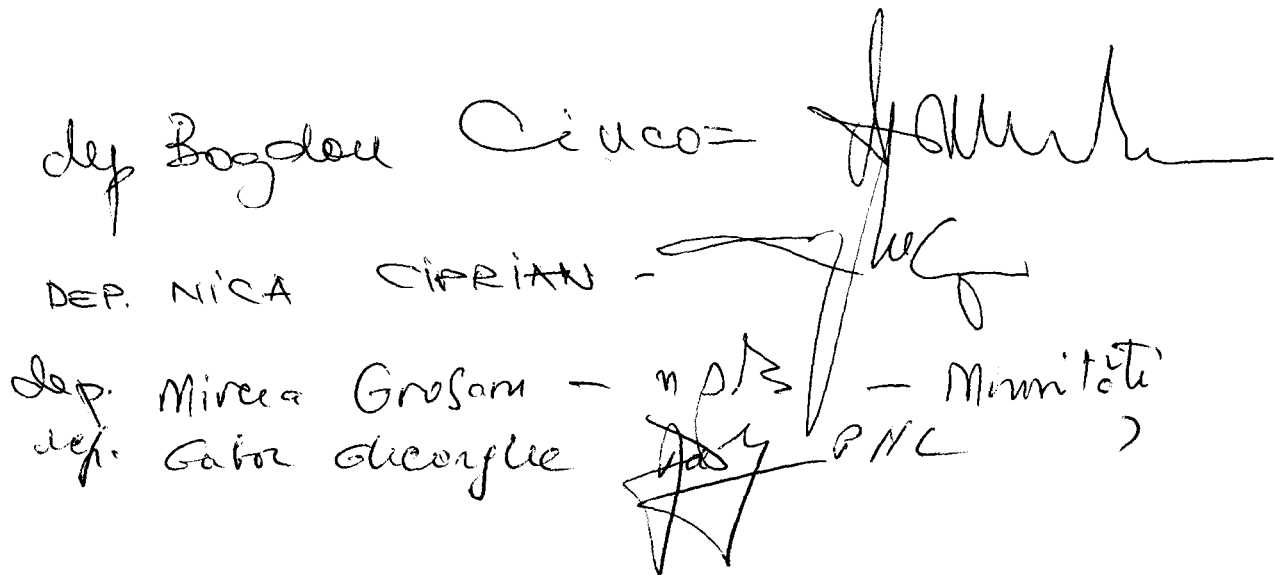 dep Bogdan Ciuca =
DEP. NICA CIPRIAN -
dep. Mircea Grosaru - - Minorităţi
dep. Gabor Gheorghe PNL